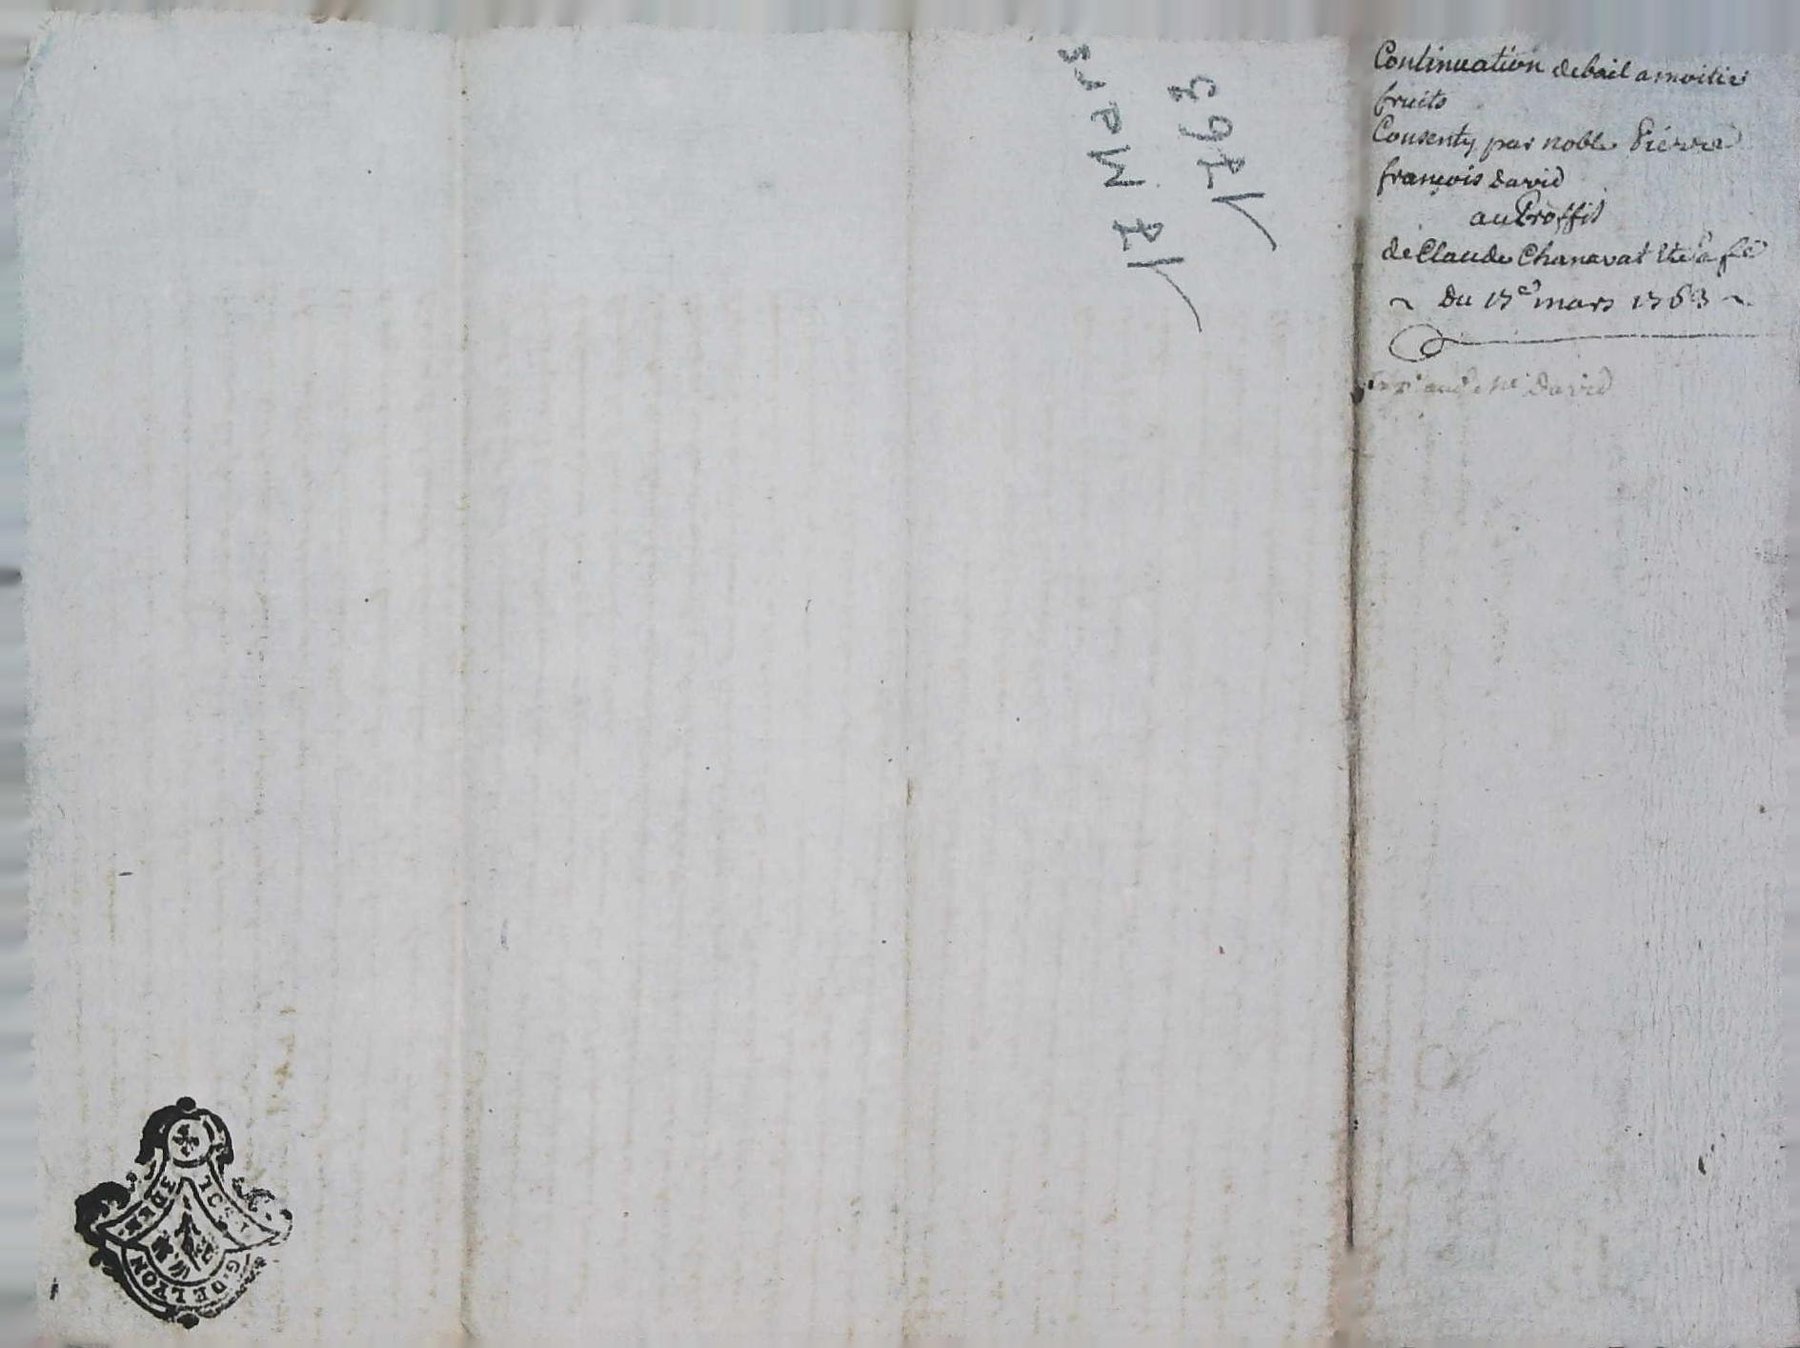 Continuation de bail a moitié
fruits
Consenty par noble Pierre
françois david
au Proffit
de Claude Chanavat et sa fe
~ Du 17e mars 1763 ~
david
17 Mars
1763
G. DE LYON
3 DEN.
1 SOL